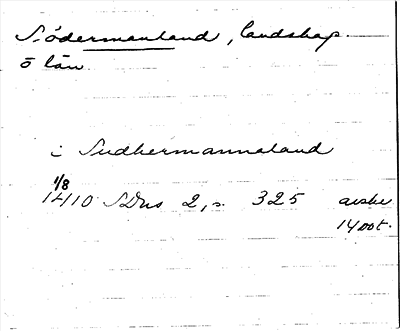 Södermanland, landskap
o län
i Sudhermannaland
1/8
1410 SDns 2, s. 325 avskr
1400t.